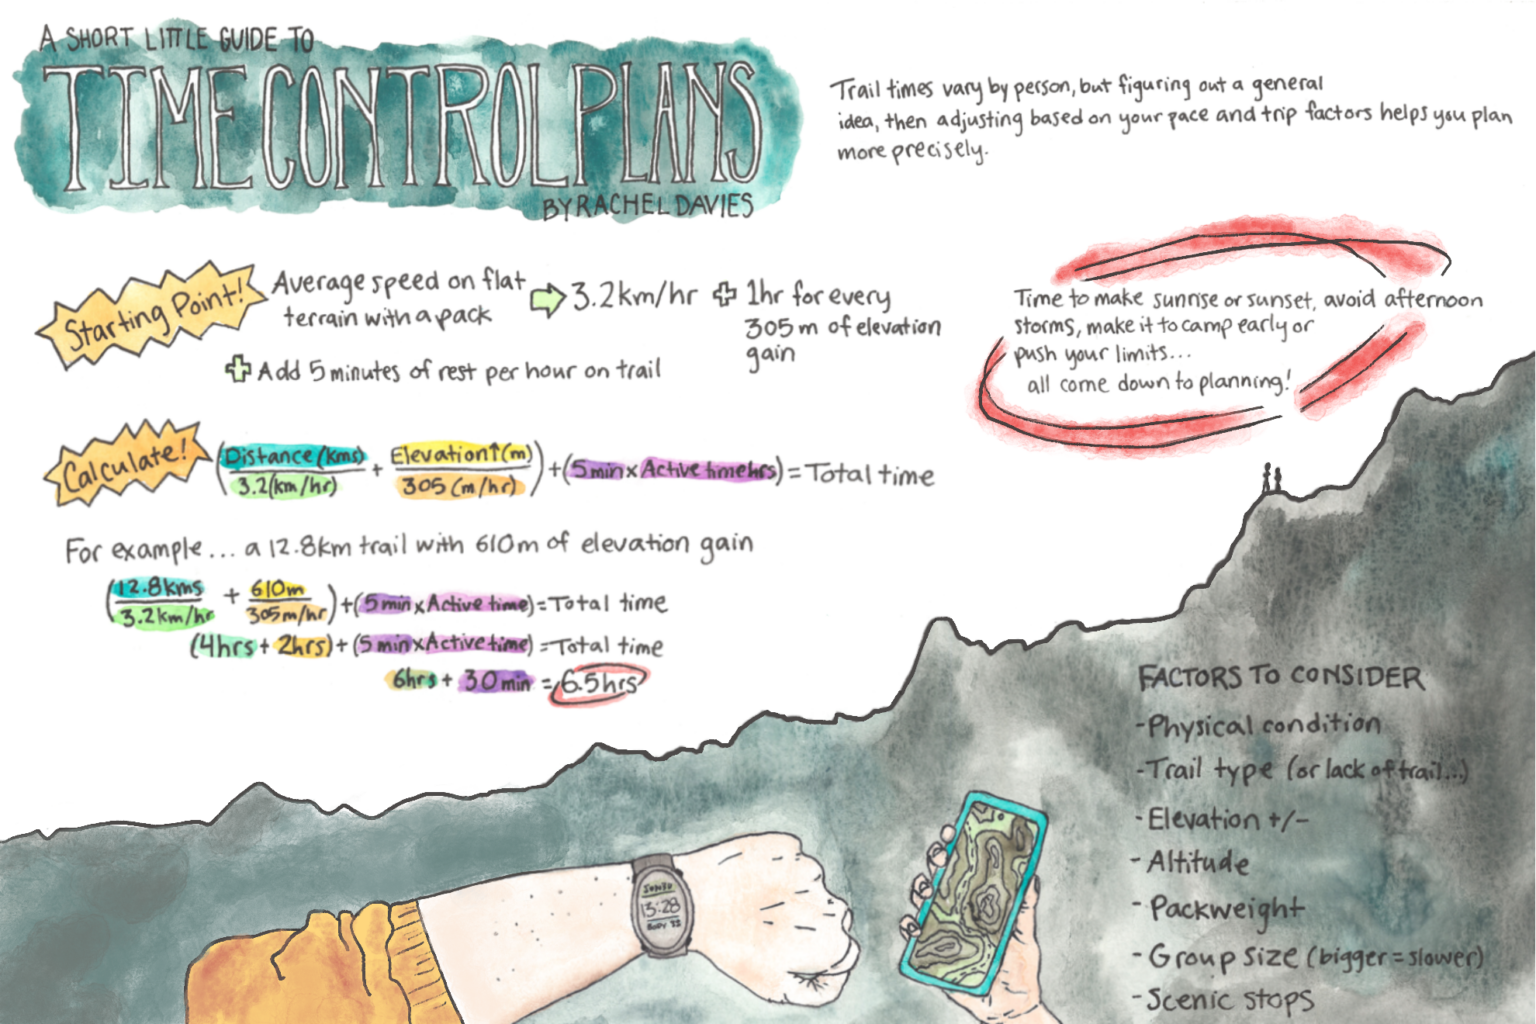 A SHORT LITTLE GUIDE TO
TIME CONTROL PLANS
BY RACHEL DAVIES
Trail times vary by person, but figuring out a general
idea, then adjusting based on your pace and trip factors helps you plan
more precisely.
Starting Point!
Average speed on flat
terrain with a pack
3.2km/hr + 1hr for every
305m of elevation
gain
+ Add 5 minutes of rest per hour on trail
Time to make sunrise or sunset, avoid afternoon
storms, make it to camp early or
push your limits...
all come down to planning!
Calculate!
(Distance (Kms)/3.2(km/hr) + Elevation↑(m)/305 (m/hr)) + (5min x Active time hrs) = Total time
For example... a 12.8km trail with 610m of elevation gain
(12.8kms/3.2km/hr + 610m/305m/hr) + (5min x Active time) = Total time
(4hrs + 2hrs) + (5min x Active time) = Total time
6hrs + 30min = 6.5hrs
FACTORS TO CONSIDER
- Physical condition
- Trail type (or lack of trail...)
- Elevation +/-
- Altitude
- Packweight
- Group size (bigger = slower)
- Scenic stops
13:28